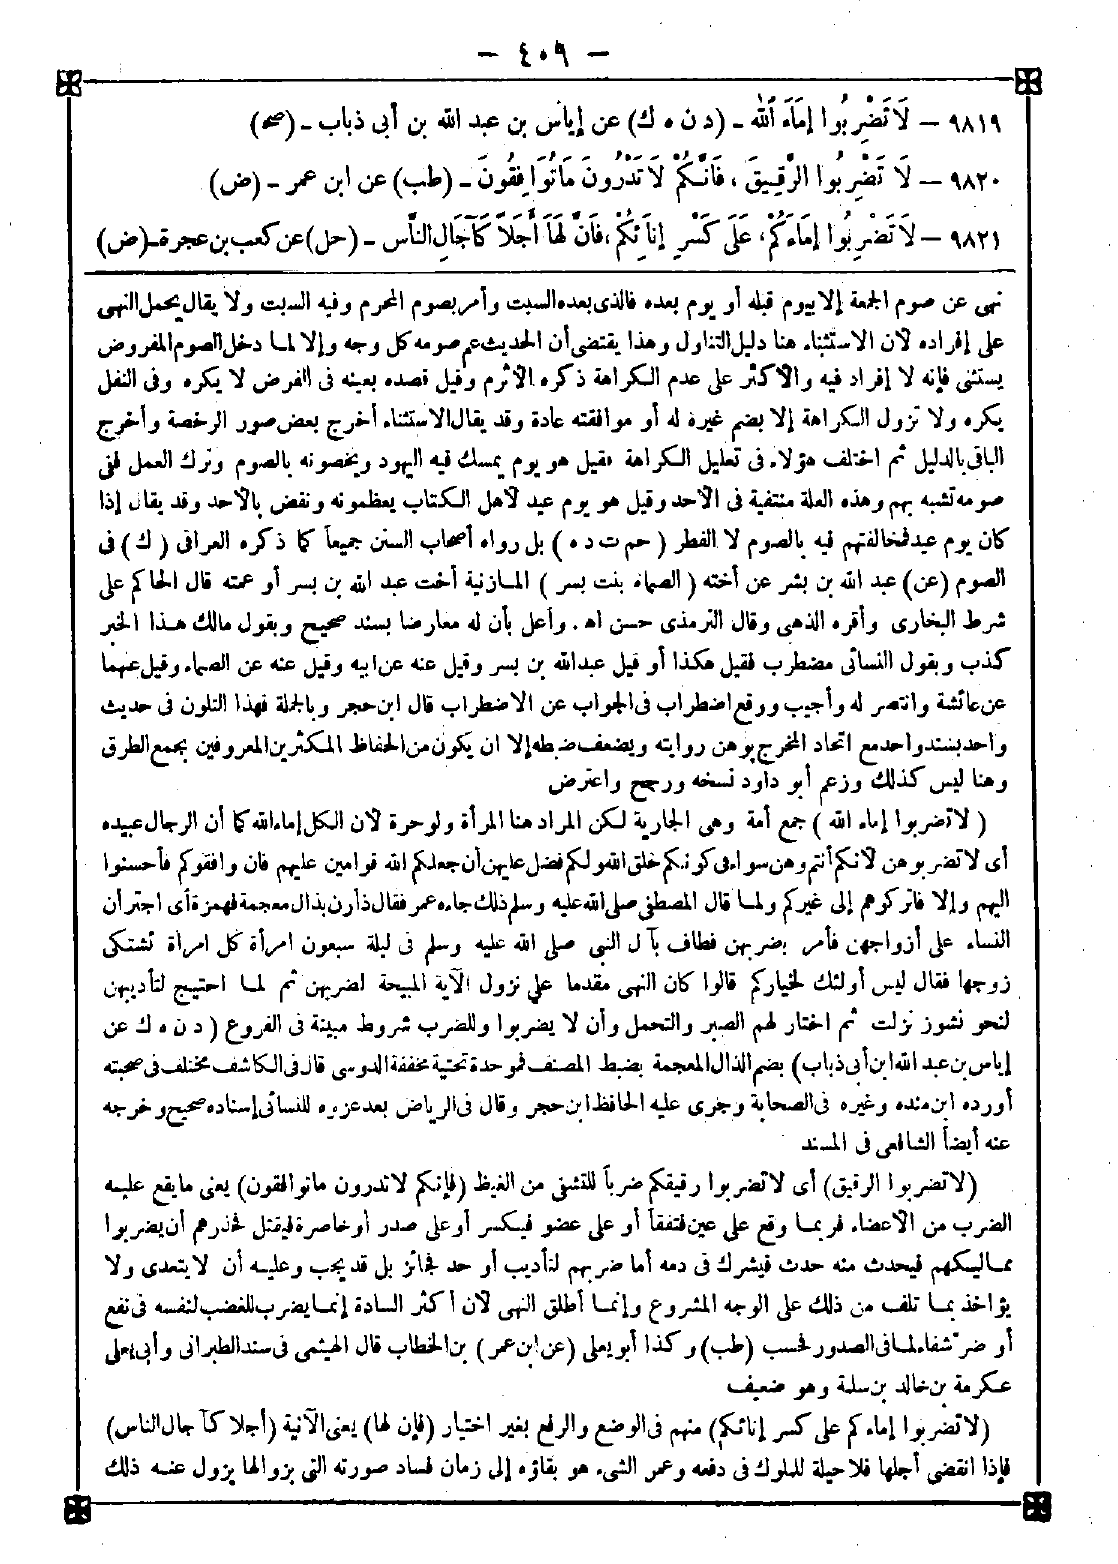 – ٤٠٩ –
٩٨١٩ – لَا تَضْرِبُوا إِمَاءَ اللهِ – (د ن ه ك) عن إياس بن عبد الله بن أبى ذباب – (صح)
٩٨٢٠ – لَا تَضْرِبُوا الرَّقِيقَ، فَإِنَّكُمْ لَا تَدْرُونَ مَا تُوَافِقُونَ – (طب) عن ابن عمر – (ض)
٩٨٢١ – لَا تَضْرِبُوا إِمَاءَكُمْ، عَلَى كَسْرِ إِنَائِكُمْ، فَإِنَّ لَهَا أَجَلًا كَآجَالِ النَّاسِ – (حل) عن كعب بن عجرة – (ض)
نهى عن صوم الجمعة إلا بيوم قبله أو يوم بعده فالذى بعده السبت وأمر بصوم المحرم وفيه السبت ولا يقال يحمل النهى
على إفراده لأن الاستثناء هنا دليل التناول وهذا يقتضى أن الحديث عم صومه كل وجه وإلا لما دخل الصوم المفروض
يستثنى فإنه لا إفراد فيه والأكثر على عدم الكراهة ذكره الأثرم وقيل قصده بعينه فى الفرض لا يكره وفى النفل
يكره ولا تزول الكراهة إلا بضم غيره له أو موافقته عادة وقد يقال الاستثناء أخرج بعض صور الرخصة وأخرج
الباقى بالدليل ثم اختلف هؤلاء فى تعليل الكراهة فقيل هو يوم يمسك فيه اليهود ويخصونه بالصوم وترك العمل ففى
صومه تشبه بهم وهذه العلة منتفية فى الأحد وقيل هو يوم عيد لأهل الكتاب يعظمونه ونقض بالأحد وقد يقال إذا
كان يوم عيد فمخالفتهم فيه بالصوم لا الفطر (حم ت د ه) بل رواه أصحاب السنن جميعاً كما ذكره العراقى (ك) فى
الصوم (عن) عبد الله بن بشر عن أخته (الصماء بنت بسر) المازنية أخت عبد الله بن بسر أو عمته قال الحاكم على
شرط البخارى وأقره الذهبى وقال الترمذى حسن اه. وأعل بأن له معارضا بسند صحيح وبقول مالك هذا الخبر
كذب وبقول النسائى مضطرب فقيل هكذا أو قيل عبدالله بن بسر وقيل عنه عن ابيه وقيل عنه عن الصماء وقيل عنهما
عن عائشة وانتصر له وأجيب ووقع اضطراب فى الجواب عن الاضطراب قال ابن حجر وبالجملة فهذا التلون فى حديث
واحد بسند واحد مع اتحاد المخرج يوهن روايته ويضعف ضبطه إلا ان يكون من الحفاظ المكثرين المعروفين بجمع الطرق
وهنا ليس كذلك وزعم أبو داود نسخه ورجح واعترض
(لا تضربوا إماء الله) جمع أمة وهى الجارية لكن المراد هنا المرأة ولو حرة لأن الكل إماء الله كما أن الرجال عبيده
أى لا تضربوهن لأنكم أنتم وهن سواء فى كونكم خلق الله ولكم فضل عليهن أن جعلكم الله قوامين عليهم فان وافقوكم فأحسنوا
اليهم وإلا فاتركوهم إلى غيركم ولما قال المصطفى صلى الله عليه وسلم ذلك جاءه عمر فقال ذأرن بذال معجمة فهمزة أى اجترأن
النساء على أزواجهن فأمر بضربهن فطاف بآل النبى صلى الله عليه وسلم فى ليلة سبعون امرأة كل امرأة تشتكى
زوجها فقال ليس أولئك لخياركم قالوا كان النهى مقدما على نزول الآية المبيحة لضربهن ثم لما احتيج لتأديبهن
لنحو نشوز نزلت ثم اختار لهم الصبر والتحمل وأن لا يضربوا وللضرب شروط مبينة فى الفروع (د ن ه ك عن
إياس بن عبد الله ابن أبى ذباب) بضم الذال المعجمة بضبط المصنف فموحدة تحتية مخففة الدوسى قال فى الكاشف مختلف فى صحبته
أورده ابن منده وغيره فى الصحابة وجرى عليه الحافظ ابن حجر وقال فى الرياض بعد عزوه للنسائى إسناده صحيح وخرجه
عنه أيضاً الشافعى فى المسند
(لا تضربوا الرقيق) أى لا تضربوا رقيقكم ضرباً للتشفى من الغيظ (فإنكم لا تدرون ما توافقون) يعنى ما يقع عليه
الضرب من الأعضاء فربما وقع على عين فتفقأ أو على عضو فيكسر أو على صدر أو خاصرة فيقتل فحذرهم أن يضربوا
مماليكهم فيحدث منه حدث فيشرك فى دمه أما ضربهم لتأديب أو حد فجائز بل قد يجب وعليه أن لا يتعدى ولا
يؤاخذ بما تلف من ذلك على الوجه المشروع وإنما أطلق النهى لأن أكثر السادة إنما يضرب للغضب لنفسه فى نفع
أو ضر شفاء لما فى الصدور فحسب (طب) وكذا أبو يعلى (عن ابن عمر) بن الخطاب قال الهيثمى فى سند الطبرانى وأبى يعلى
عكرمة بن خالد بن سلمة وهو ضعيف
(لا تضربوا إماءكم على كسر إنائكم) منهم فى الوضع والرفع بغير اختيار (فإن لها) يعنى الآنية (أجلا كآجال الناس)
فإذا انقضى أجلها فلا حيلة للملوك فى دفعه وعمر الشىء هو بقاؤه إلى زمان فساد صورته التى بزوالها يزول عنه ذلك